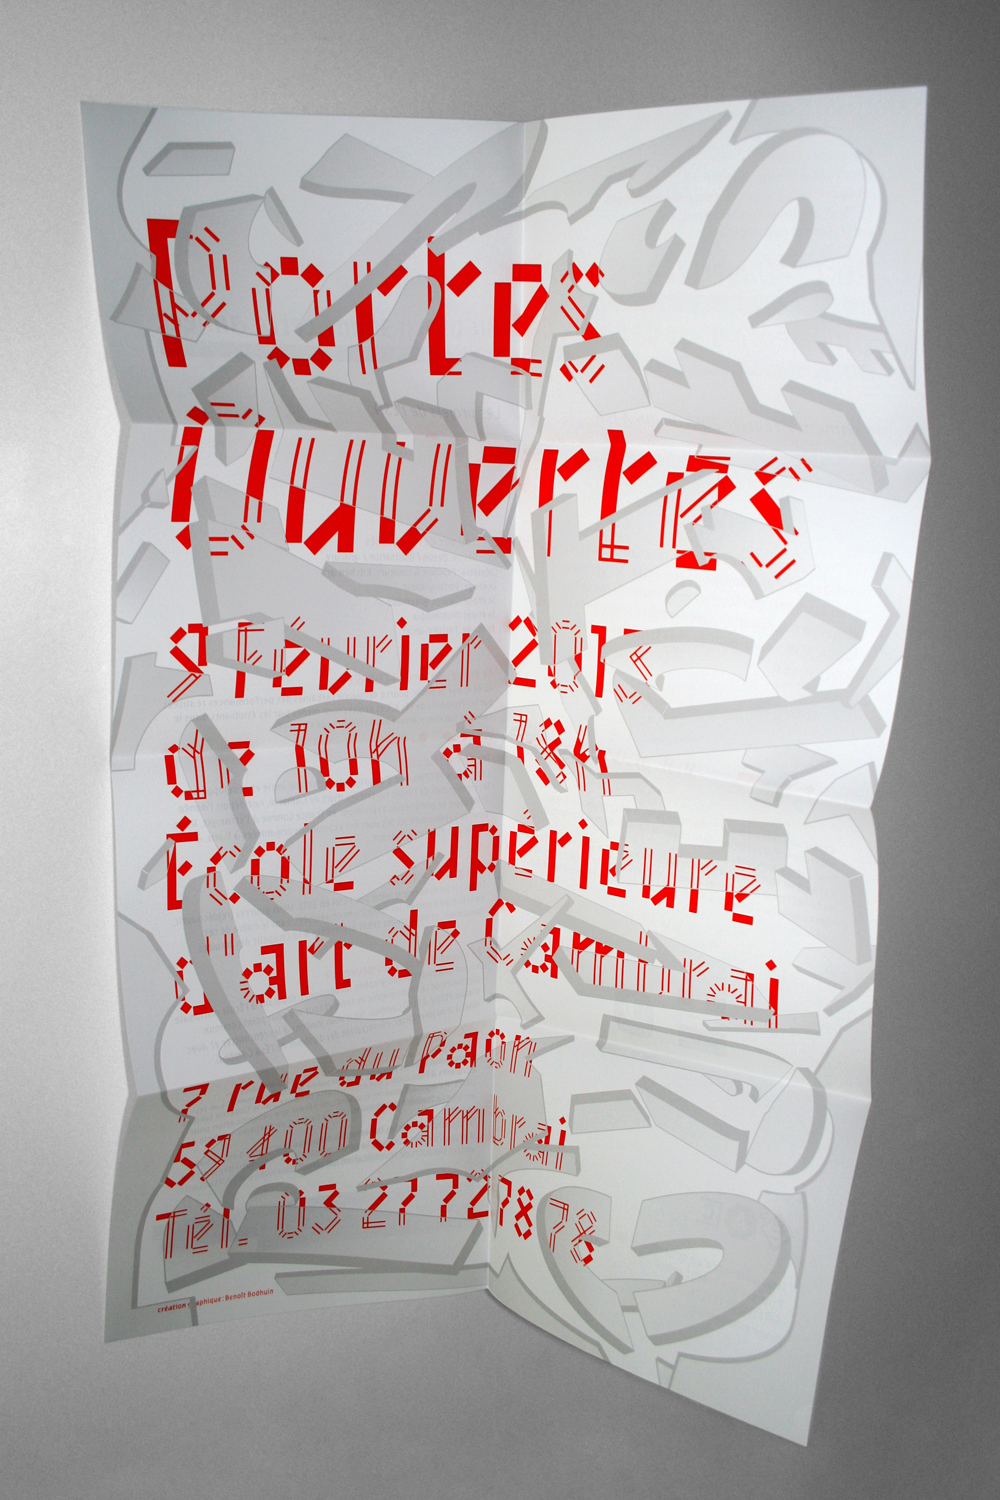 Portes
Ouvertes
9 Février
de 10h à 18h
École supérieure
d'art de Cambrai
7 rue du Paon
59 400 Cambrai
Tél. 03 27 72 78 78
création graphique: Benoît Bodhuin